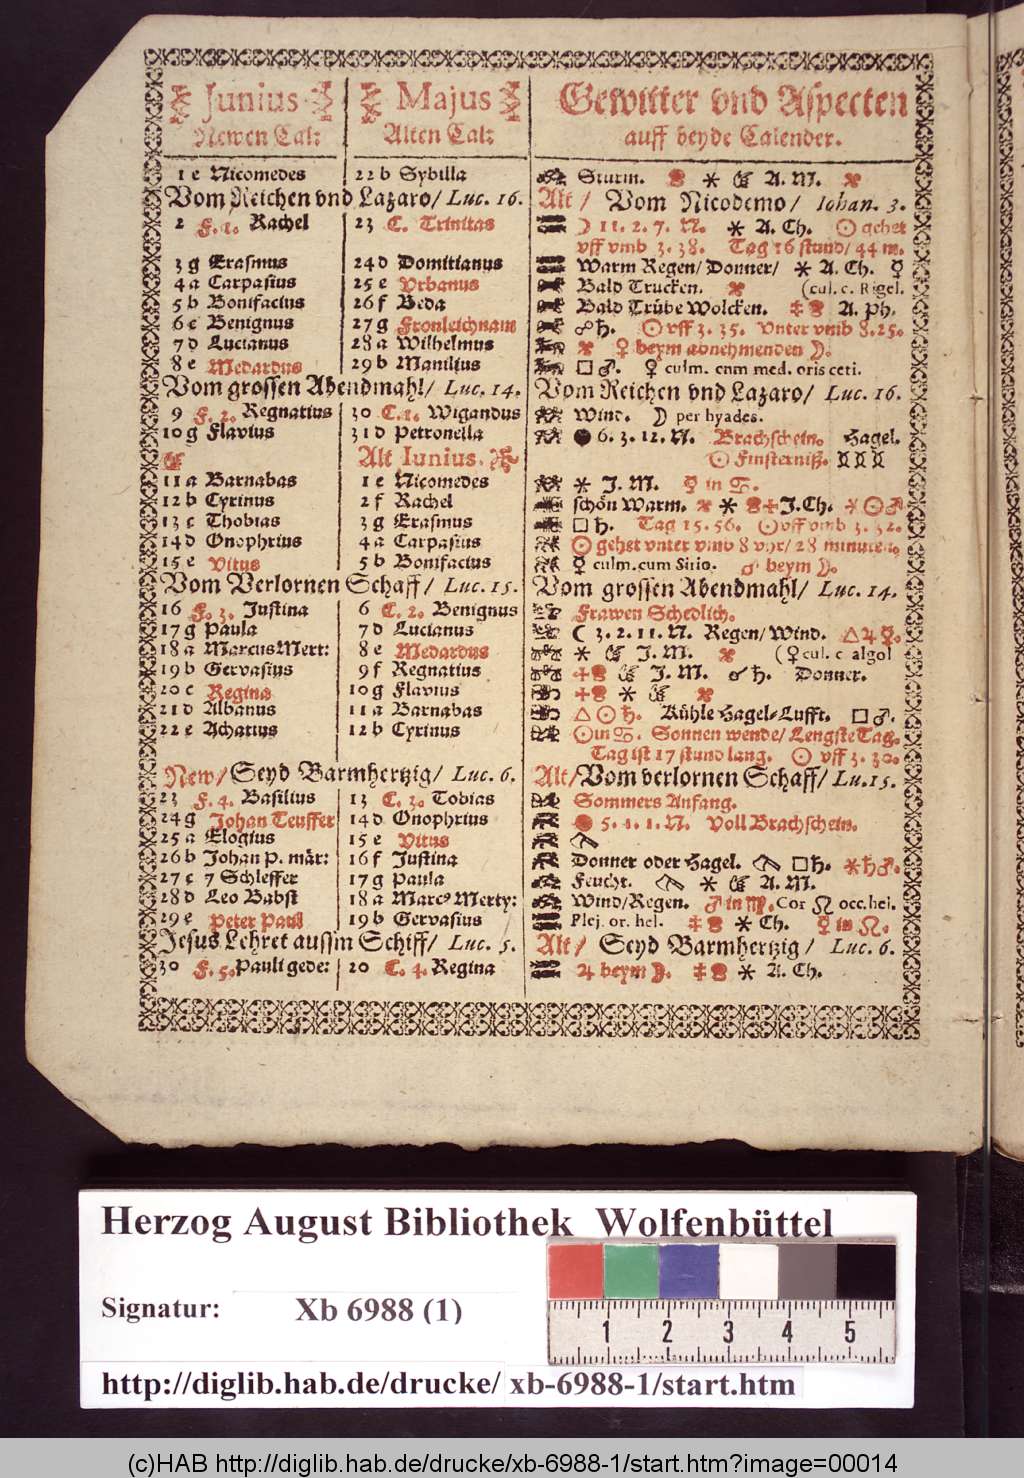 Junius Majus Gewitter vnd Aspecten
Newen Cal: Alten Cal: auff beyde Calender.
1 e Nicomedes 22 b Sybilla Sturm. ⚹ A. M.
Vom Reichen vnd Lazaro/ Luc. 16. Alt/ Vom Nicodemo/ Iohan. 3.
2 F. 1. Rachel 23 C. Trinitas ☽ 11. 2. 7. N. ⚹ A. Ch. ☉ gehet
vff vmb 3. 38. Tag 16 stund/ 44 m.
3 g Erasmus 24 d Domitianus Warm Regen/ Donner/ ⚹ A. Ch. ☿
4 a Carpasius 25 e Vrbanus Bald Trucken. (cul. c. Rigel.
5 b Bonifacius 26 f Beda Bald Trübe Wolcken. A. Ph.
6 c Benignus 27 g Fronleichnam ☍ ♄. ☉ vff 3. 35. Vnter vmb 8. 25.
7 d Lucianus 28 a Wilhelmus ♀ beym abnehmenden ☽.
8 e Medardus 29 b Manilius □ ♂. ♀ culm. cnm med. oris ceti.
Vom grossen Abendmahl/ Luc. 14. Vom Reichen vnd Lazaro/ Luc. 16.
9 F. 2. Regnatius 30 C. 1. Wigandus Wind. ☽ per hyades.
10 g Flavius 31 d Petronella ● 6. 3. 12. N. Brachschein. Hagel.
Alt Iunius. ☉ Finsterniß.
11 a Barnabas 1 e Nicomedes ⚹ J. M. ☿ in ♋.
12 b Cyrinus 2 f Rachel schön Warm. ⚹ J. Ch. ⚹ ☉ ♂
13 c Thobias 3 g Erasmus □ ♄. Tag 15. 56. ☉ vff vmb 3. 32.
14 d Onophrius 4 a Carpasius ☉ gehet vnter vmb 8 vhr/ 28 minuten.
15 e Vitus 5 b Bonifacius ☿ culm. cum Sirio. ♂ beym ☽.
Vom Verlornen Schaff/ Luc. 15. Vom grossen Abendmahl/ Luc. 14.
16 F. 3. Justina 6 C. 2. Benignus Frawen Schedlich.
17 g Paula 7 d Lucianus ☾ 3. 2. 11. N. Regen/ Wind. △ ♃ ☿.
18 a Marcus Mert: 8 e Medardus ⚹ J. M. (♀ cul. c algol
19 b Gervasius 9 f Regnatius J. M. ☌ ♄. Donner.
20 c Regina 10 g Flavius ⚹
21 d Albanus 11 a Barnabas △ ☉ ♄. Kühle Hagel-Lufft. □ ♂.
22 e Achatius 12 b Cyrinus ☉ in ♋. Sonnen wende/ Lengste Tag.
Tag ist 17 stund lang. ☉ vff 3. 30.
New/ Seyd Barmhertzig/ Luc. 6. Alt/ Vom verlornen Schaff/ Lu. 15.
23 F. 4. Basilius 13 C. 3. Tobias Sommers Anfang.
24 g Johan Teuffer 14 d Onophrius 5. 4. 1. N. Voll Brachschein.
25 a Elogius 15 e Vitus
26 b Johan P. mär: 16 f Justina Donner oder Hagel. □ ♄. ⚹ ♄ ♂.
27 c 7 Schleffer 17 g Paula Feucht. ⚹ A. M.
28 d Leo Babst 18 a Marcꝰ Merty: Wind/ Regen. ♂ in ♍. Cor ♌ occ. hel.
29 e Peter Paul 19 b Gervasius Plej. or. hel. ⚹ Ch. ☿ in ♌.
Jesus Lehret aussim Schiff/ Luc. 5. Alt/ Seyd Barmhertzig/ Luc. 6.
30 F. 5. Pauli gede: 20 C. 4. Regina ♃ beym ☽. ⚹ A. Ch.
Herzog August Bibliothek Wolfenbüttel
Signatur: Xb 6988 (1)
1 2 3 4 5
http://diglib.hab.de/drucke/ xb-6988-1/start.htm
(c)HAB http://diglib.hab.de/drucke/xb-6988-1/start.htm?image=00014